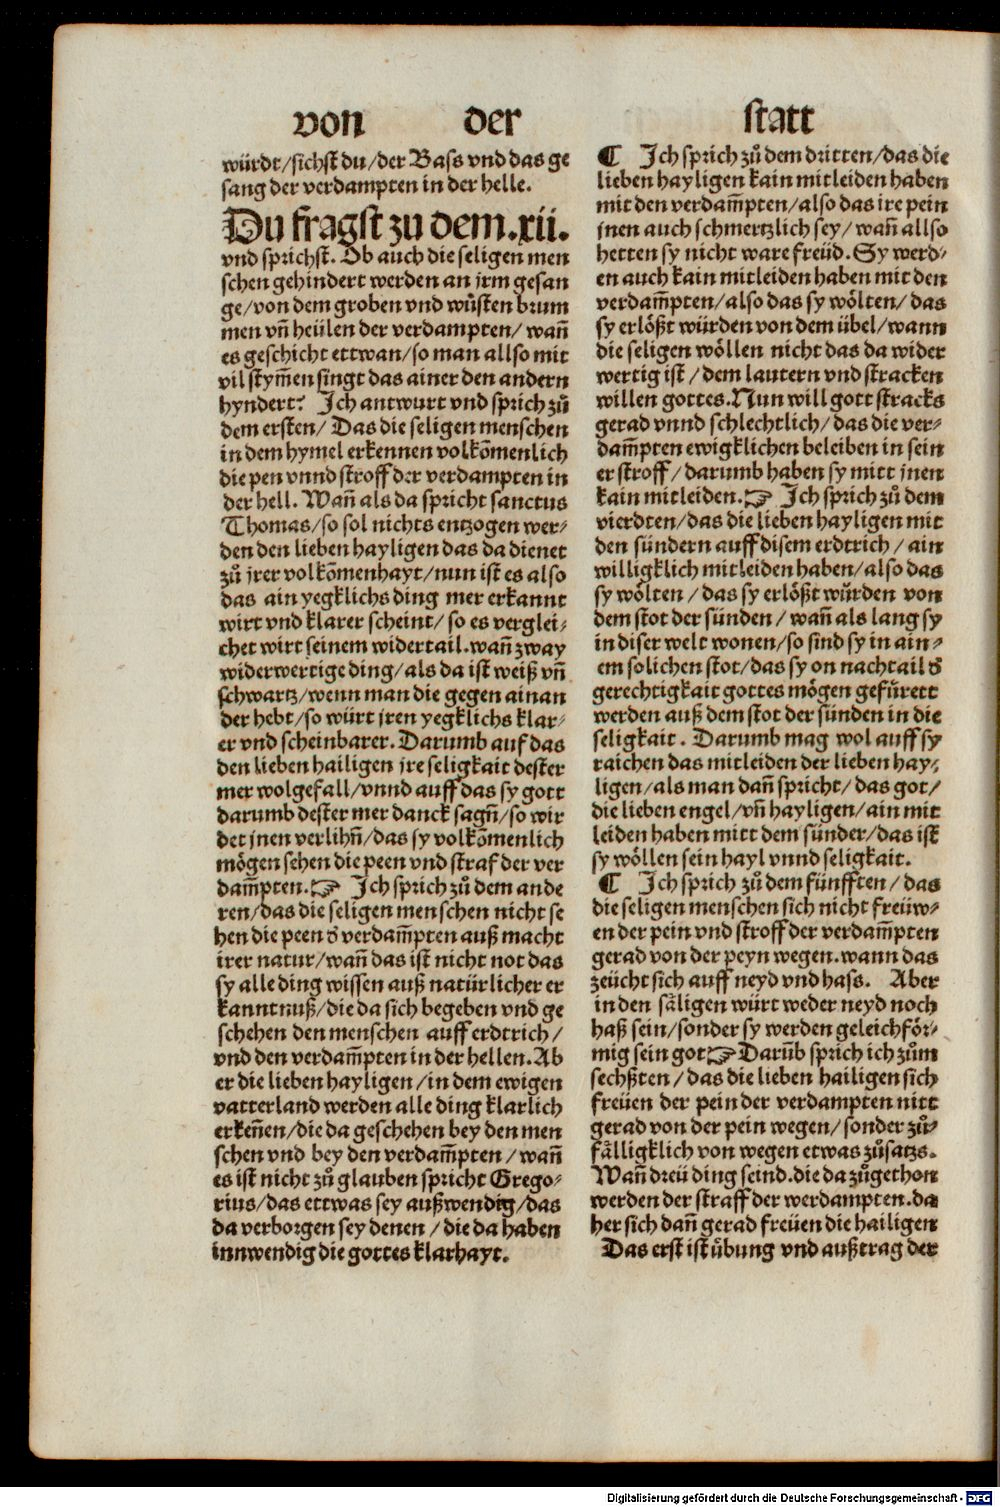 von der statt
würdt/sichst du/der Bass vnd das ge
sang der verdampten in der helle.
Du fragst zu dem.xii.
vnd sprichst. Ob auch die seligen men
schen gehindert werden an jrm gesan
ge/von dem groben vnd wůsten brum
men vn̄ heülen der verdampten/ wan̄
es geschicht ettwan/so man allso mit
vil stym̄en singt das ainer den andern
hyndert? Ich antwurt vnd sprich zů
dem ersten/ Das die seligen menschen
in dem hymel erkennen volkōmenlich
die pen vnnd stroff der verdampten in
der hell. Wan̄ als da spricht sanctus
Thomas/so sol nichts entzogen wer⸗
den den lieben hayligen das da dienet
zů jrer volkōmenhayt/nun ist es also
das ain yegklichs ding mer erkannt
wirt vnd klarer scheint/ so es verglei⸗
chet wirt seinem widertail.wan̄ zway
widerwertige ding/als da ist weiß vn̄
schwartz/wenn man die gegen ainan
der hebt/so würt jren yegklichs klar⸗
er vnd scheinbarer. Darumb auf das
den lieben hailigen jre seligkait dester
mer wolgefall/vnnd auff das sy gott
darumb dester mer danck sagn̄/so wir
det jnen verlihn̄/das sy volkōmenlich
mögen sehen die peen vnd straf der ver
dam̄pten.☞ Ich sprich zů dem ande
ren/das die seligen menschen nicht se
hen die peen d᷑ verdam̄pten auß macht
irer natur/wan̄ das ist nicht not das
sy alle ding wissen auß natürlicher er
kanntnuß/die da sich begeben vnd ge
schehen den menschen auff erdtrich/
vnd den verdam̄pten in der hellen.Ab
er die lieben hayligen/in dem ewigen
vatterland werden alle ding klarlich
erken̄en/die da geschehen bey den men
schen vnd bey den verdam̄pten/ wan̄
es ist nicht zů glauben spricht Grego⸗
rius/das ettwas sey außwendig/das
da verborgen sey denen/ die da haben
innwendig die gottes klarhayt.
¶ Ich sprich zů dem dritten/das die
lieben hayligen kain mitleiden haben
mit den verdam̄pten/also das ire pein
jnen auch schmertzlich sey/ wan̄ allso
hetten sy nicht ware freüd. Sy werd⸗
en auch kain mitleiden haben mit den
verdam̄pten/also das sy wölten/ das
sy erlößt würden von dem übel/wann
die seligen wöllen nicht das da wider
wertig ist/ dem lautern vnd stracken
willen gottes.Nun will gott stracks
gerad vnnd schlechtlich/ das die ver⸗
dam̄pten ewigklichen beleiben in sein
er stroff/ darumb haben sy mitt jnen
kain mitleiden.☞ Ich sprich zů dem
vierdten/das die lieben hayligen mit
den sündern auff disem erdtrich/ ain
willigklich mitleiden haben/also das
sy wölten/ das sy erlößt würden von
dem stot der sünden/ wan̄ als lang sy
in diser welt wonen/so sind sy in ain⸗
em solichen stot/das sy on nachtail d᷑
gerechtigkait gottes mögen gefürett
werden auß dem stot der sünden in die
seligkait. Darumb mag wol auff sy
raichen das mitleiden der lieben hay⸗
ligen/als man dan̄ spricht/das got/
die lieben engel/vn̄ hayligen/ain mit
leiden haben mitt dem sünder/das ist
sy wöllen sein hayl vnnd seligkait.
¶ Ich sprich zů dem fünfften/ das
die seligen menschen sich nicht freüw⸗
en der pein vnd stroff der verdam̄pten
gerad von der peyn wegen.wann das
zeücht sich auff neyd vnd hass. Aber
in den säligen würt weder neyd noch
haß sein/sonder sy werden geleichför⸗
mig sein got☞Darūb sprich ich zům
sechßten/ das die lieben hailigen sich
freüen der pein der verdampten nitt
gerad von der pein wegen/sonder zů⸗
fälligklich von wegen etwas zůsatzs.
Wan̄ dreü ding seind.die da zůgethon
werden der straff der werdampten.da
her sich dan̄ gerad freüen die hailigen
Das erst ist übung vnd außtrag der
Digitalisierung gefördert durch die Deutsche Forschungsgemeinschaft - DFG